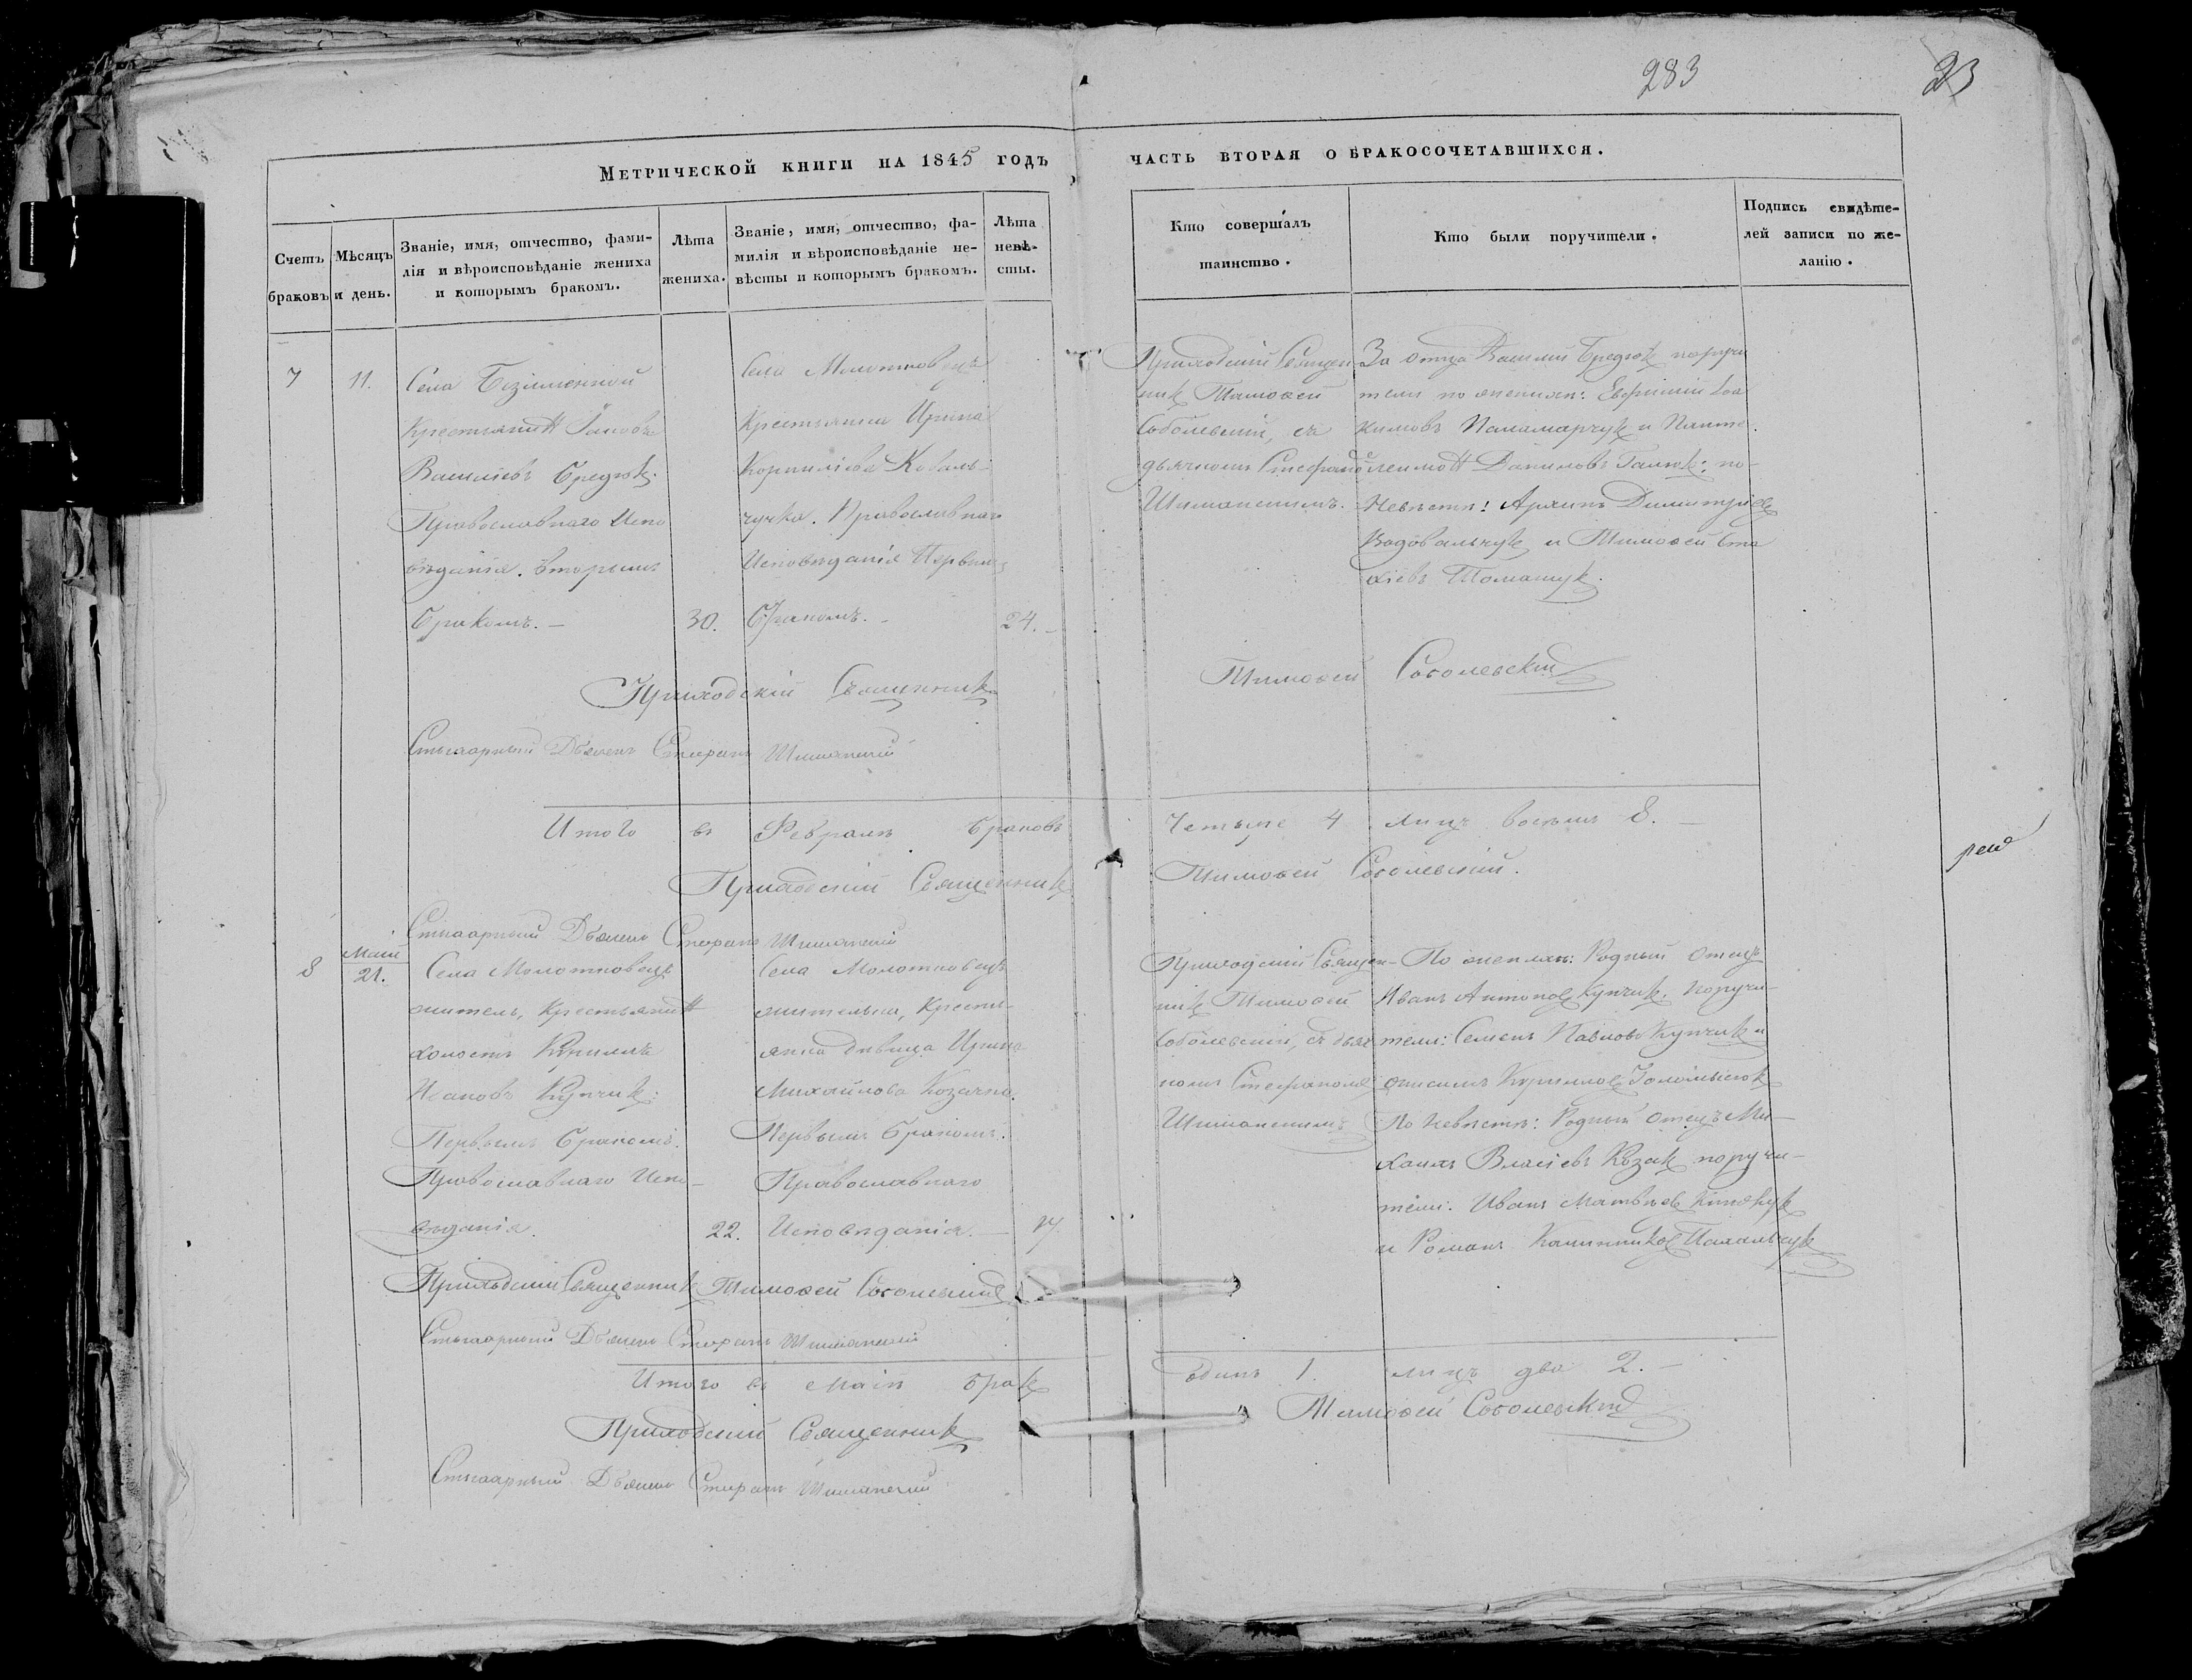 283
23
Метрической книги на 1845 годъ
часть вторая о бракосочетавшихся.
Счетъ браковъ
Мѣсяцъ и день.
Званіе, имя, отчество, фами-
лія и вѣроисповѣданіе жениха
и которымъ бракомъ.
Лѣта
жениха.
Званіе, имя, отчество, фа-
милія и вѣроисповѣданіе не-
вѣсты и которымъ бракомъ.
Лѣта
невѣ-
сты.
Кто совершалъ
таинство.
Кто были поручители.
Подпись свидѣте-
лей записи по же-
ланію.
7
11.
Села
Крестьянинъ Іаковъ
Васильевъ Бредюкъ.
Православнаго Испо
вѣданія. вторымъ
бракомъ. —
30.
Села Молотковецъ
Крестьянка Ирина
Корниліева Коваль-
чучка. Православнаго
Исповѣданія Первымъ
бракомъ. -
24. -
Приходскій Священ-
никъ Тимоѳей
Соболевскій, съ
дьячкомъ Стефаномъ
Шиманскимъ.
За отца Василій Бредюкъ поручи
тели по женихѣ: Евфимій Іоа
кимовъ Паламарчукъ и Панте-
леимонъ Даниловъ по
Невѣстѣ: Архипъ Димитріевъ
и Тимоѳей
Томашукъ.
Приходскій Священникъ
Тимоѳей Соболевскій
Дьячекъ Стефанъ Шиманскій
Итого въ Февралѣ браковъ
Четыре 4 лицъ восемь 8. —
Приходскій Священникъ
Тимоѳей Соболевскій.
Дьячекъ Стефанъ Шиманскій
8
Маій
21.
Села Молотковецъ
житель, Крестьянинъ
холостъ Кириллъ
Ивановъ Купчикъ:
Первымъ бракомъ.
Православнаго Испо-
вѣданія.
22.
Села Молотковецъ
жителька, Кресть-
янка дѣвица Ирина
Михайлова Козачка.
Первымъ бракомъ.
Православнаго
Исповѣданія. —
17.
Приходскій Священ-
никъ Тимоѳей
Соболевскій, съ дьяч
комъ Стефаномъ
Шиманскимъ
По женихѣ: Родный отецъ
Иванъ Антоновъ Купчикъ. поручи-
тели: Семенъ Павловъ Купчикъ и
Онисимъ Кирилловъ
По невѣстѣ: Родный отецъ Ми-
хаилъ Власіевъ Козакъ поручи-
тели: Иванъ Матвѣевъ
и Романъ
Приходскій Священникъ Тимоѳей Соболевскій
Дьячекъ Стефанъ Шиманскій
Итого въ Маіѣ бракъ
Одинъ 1. лицъ два 2. —
Приходскій Священникъ
Тимоѳей Соболевскій
Дьячекъ Стефанъ Шиманскій